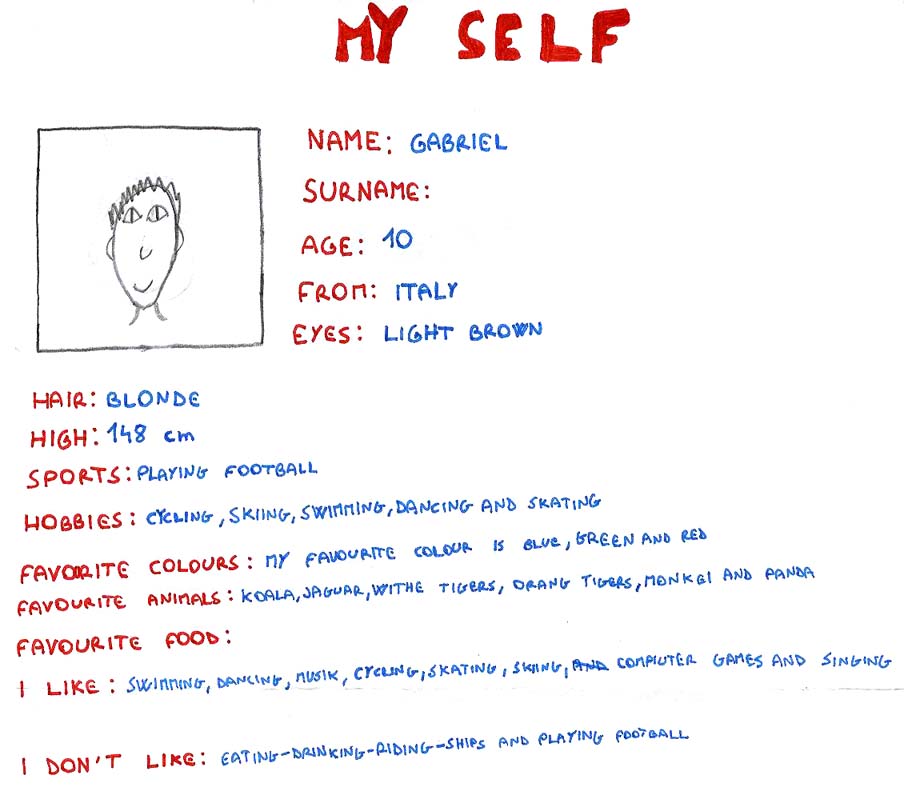 MY SELF
NAME: GABRIEL
SURNAME:
AGE: 10
FROM: ITALY
EYES: LIGHT BROWN
HAIR: BLONDE
HIGH: 148 cm
SPORTS: PLAYING FOOTBALL
HOBBIES: CYCLING, SKIING, SWIMMING, DANCING AND SKATING
FAVOURITE COLOURS: MY FAVOURITE COLOUR IS BLUE, GREEN AND RED
FAVOURITE ANIMALS: KOALA, JAGUAR, WITHE TIGERS, ORANG TIGERS, MONKEI AND PANDA
FAVOURITE FOOD:
I LIKE: SWIMMING, DANCING, MUSIK, CYCLING, SKATING, SKIING, AND COMPIUTER GAMES AND SINGING
I DON'T LIKE: EATING-DRINKING-RIDING-SHIPS AND PLAYING FOOTBALL